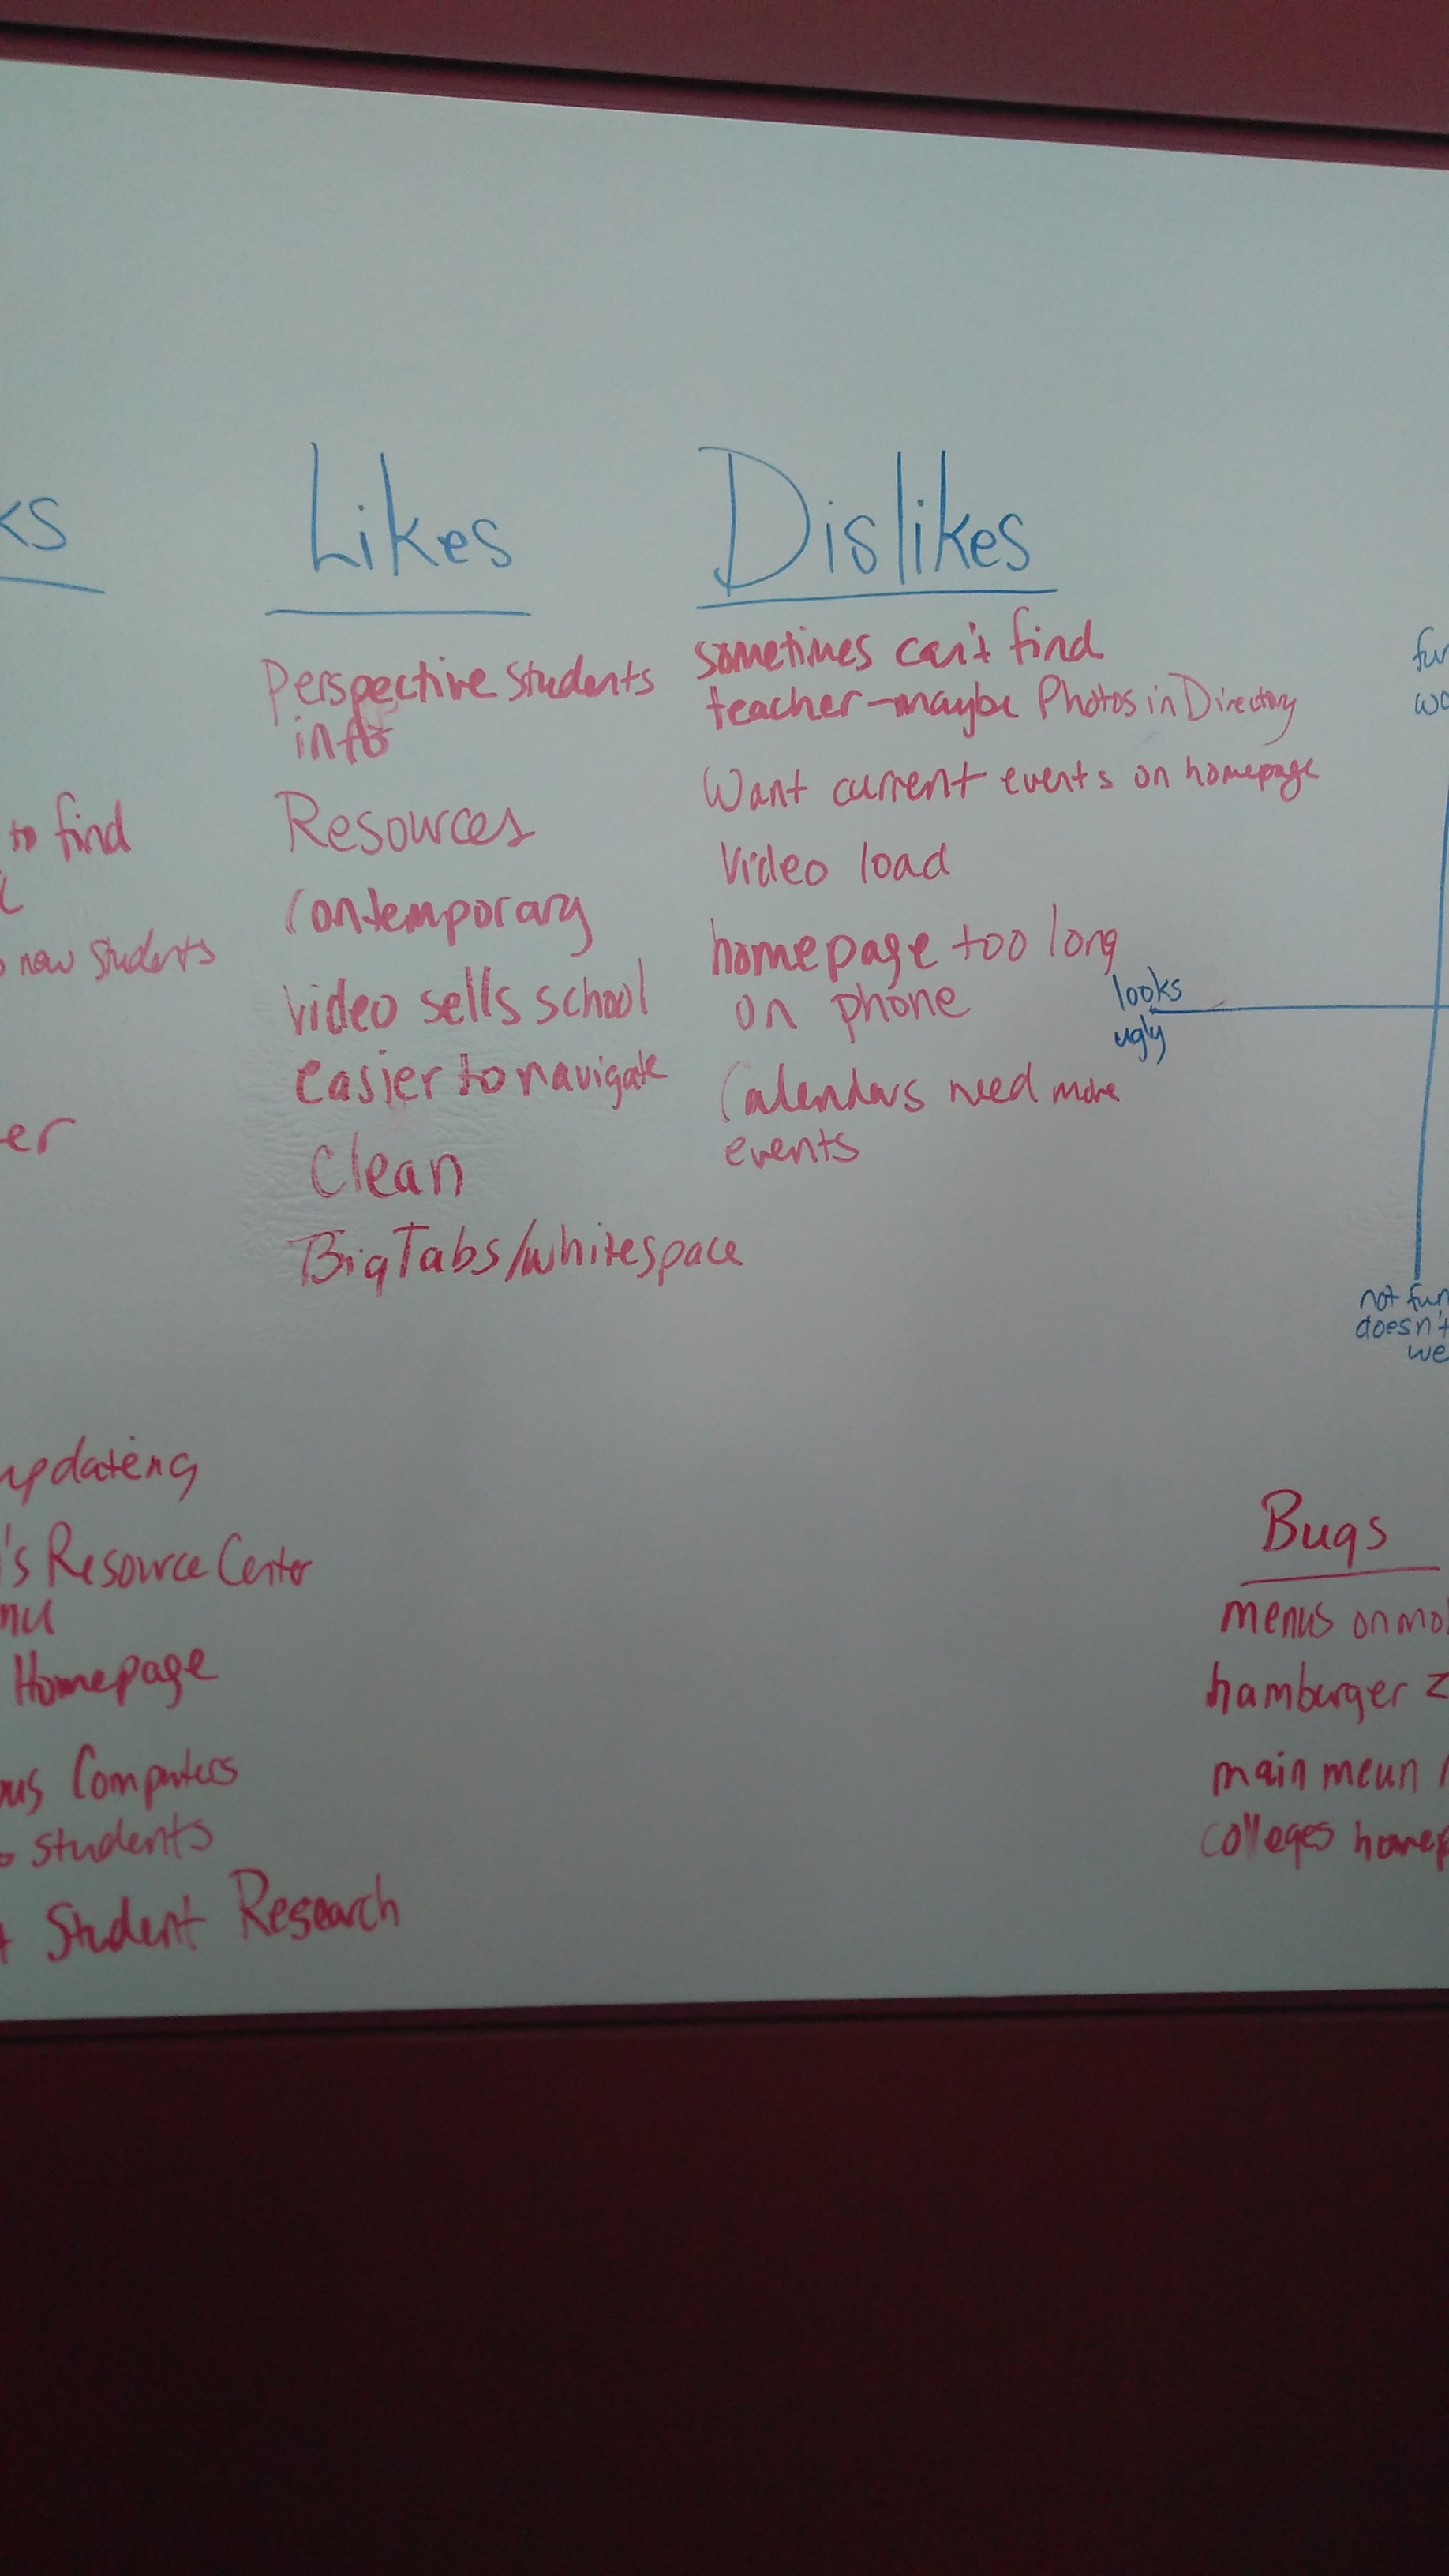 ks
to find
new students
er
updateing
's Resource Center
Homepage
ous Computers
students
Student Research
Likes
Perspective students
info
Resources
Contemporary
video sells school
easier to navigate
Clean
Big Tabs/whitespace
Dislikes
sometimes can't find
teacher-maybe Photos in Directory
Want current events on homepage
Video load
homepage too long
on phone
Calendars need more
events
looks
ugly
fun
wo
not fun
doesn't
we
Bugs
menus on mo
hamburger
main meun
colleges homep